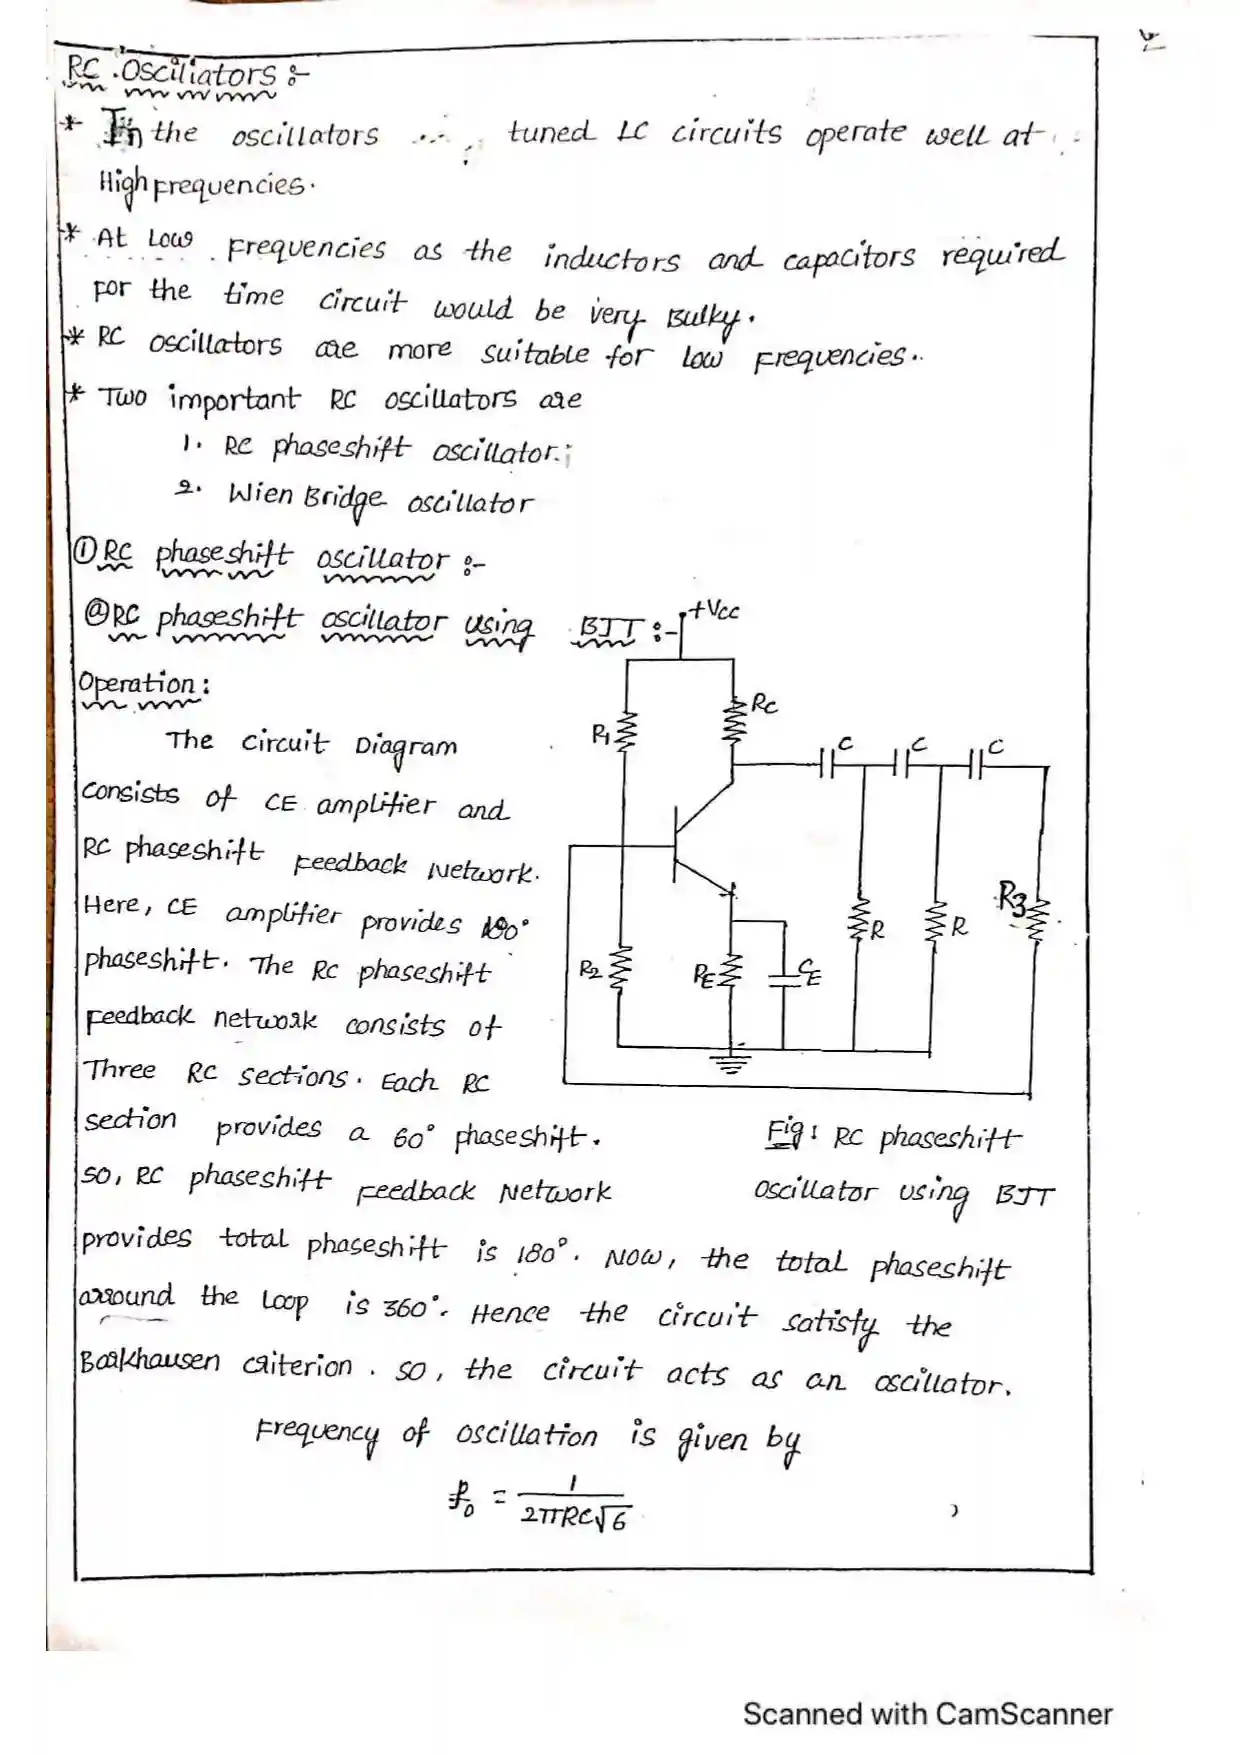 RC Oscillators :-
* In the oscillators tuned LC circuits operate well at
High frequencies.
* At Low frequencies as the inductors and capacitors required
for the time circuit would be very Bulky.
* RC oscillators are more suitable for low frequencies.
* Two important RC oscillators are
1. RC phaseshift oscillator.
2. Wien Bridge oscillator
① RC phaseshift oscillator :-
ⓐ RC phaseshift oscillator using BJT :-
+Vcc
Operation :
RC
R1
The circuit Diagram
C C C
consists of CE amplifier and
RC phaseshift feedback Network.
Here, CE amplifier provides 180°
R3
R R
phaseshift. The RC phaseshift
R2 RE CE
feedback network consists of
Three RC sections. Each RC
section provides a 60° phaseshift.
Fig: RC phaseshift
oscillator using BJT
so, RC phaseshift feedback Network
provides total phaseshift is 180°. Now, the total phaseshift
around the Loop is 360°. Hence the circuit satisfy the
Barkhausen criterion. so, the circuit acts as an oscillator.
Frequency of oscillation is given by
f₀ = 1 / 2πRC√6
Scanned with CamScanner